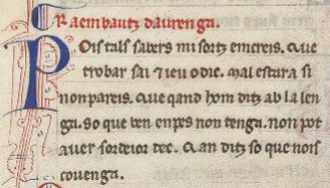 Raembautz daurenga.
Pois tals sabers mi sortz em creis. Que
trobar sai et ieu o dic. Mal estara si
non pareis. Que qand hom ditz ab la len
ga. So que ven enpes non tenga. non pot
aver sordeior dec. Can ditz so que nois
covenga.